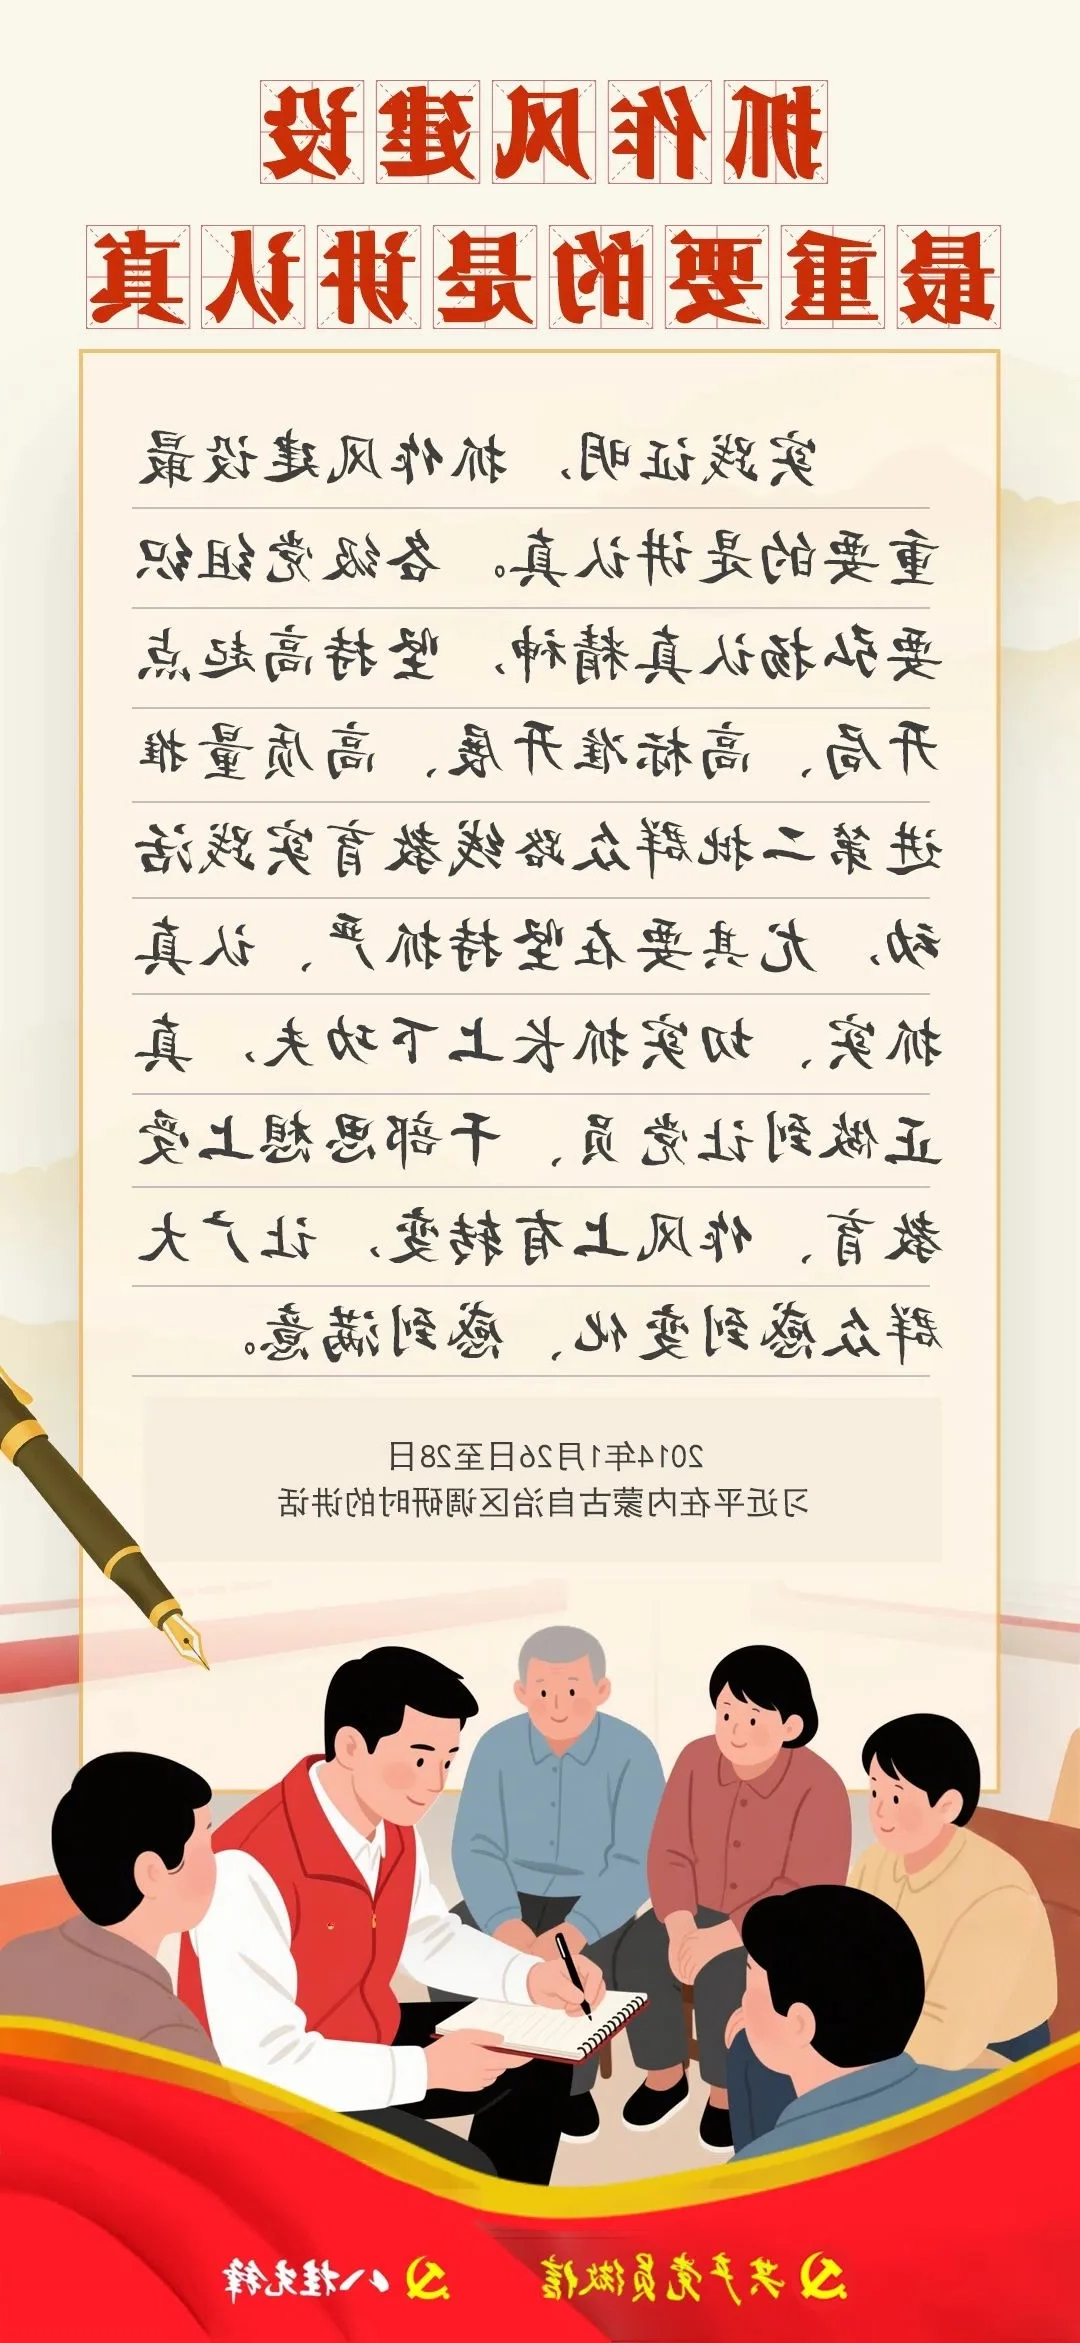 抓作风建设
最重要的是讲认真
实践证明，抓作风建设最
重要的是讲认真。各级党组织
要弘扬认真精神，坚持高起点
开局、高标准开展、高质量推
进第二批群众路线教育实践活
动，尤其要在坚持抓严、认真
抓实、切实抓长上下功夫，真
正做到让党员、干部思想上受
教育、作风上有转变，让广大
群众感到变化、感到满意。
2014年1月26日至28日
习近平在内蒙古自治区调研时的讲话
共产党员微信
八桂先锋